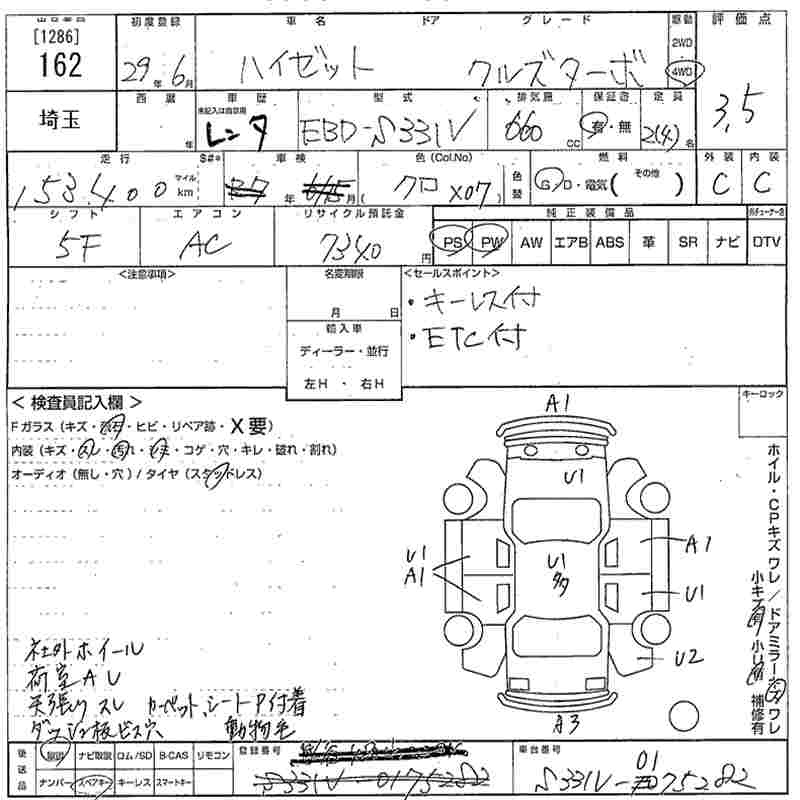 出品番号 初度登録 車名 ドア グレード 駆動 評価点
[1286]
162
29年 6月 ハイゼット クルズターボ 2WD 4WD 3.5
埼玉
西暦 車歴 型式 排気量 保証書 定員
年 未記入は自家用 レンタ EBD-S331V 660cc 有・無 2(4)名
走行 S#* 車検 色(Col.No) 色替 燃料 外装 内装
153,400 マイル km 年 月( クロ X07) G・D・電気( その他 ) C C
シフト エアコン リサイクル預託金 純正装備品
5F AC 7340円 PS PW AW エアB ABS 革 SR ナビ DTV
<注意事項> 名変期限 <セールスポイント>
月 日 ・キーレス付
輸入車 ・ETC付
ディーラー・並行
左H ・ 右H
< 検査員記入欄 > キーロック
Fガラス (キズ・飛石・ヒビ・リペア跡・X要)
内装 (キズ・スレ・汚れ・シミ・コゲ・穴・キレ・破れ・割れ)
オーディオ (無し・穴) / タイヤ (スタッドレス)
A1
U1
U1
A1
U1
多
A1
U1
U2
A3
ホイル・CPキズ ワレ / ドアミラーキズ ワレ
小キズ有 小U有 補修有
社外ホイール
荷室AU
天張りスレ カーペット、シートP付着
ダッシュ板ビス穴 動物毛
後送品 取説 ナビ取説 ロム/SD B-CAS リモコン 登録番号 車台番号
ナンバー スペアキー キーレス スマートキー S331V-0175282 01 S331V-75282